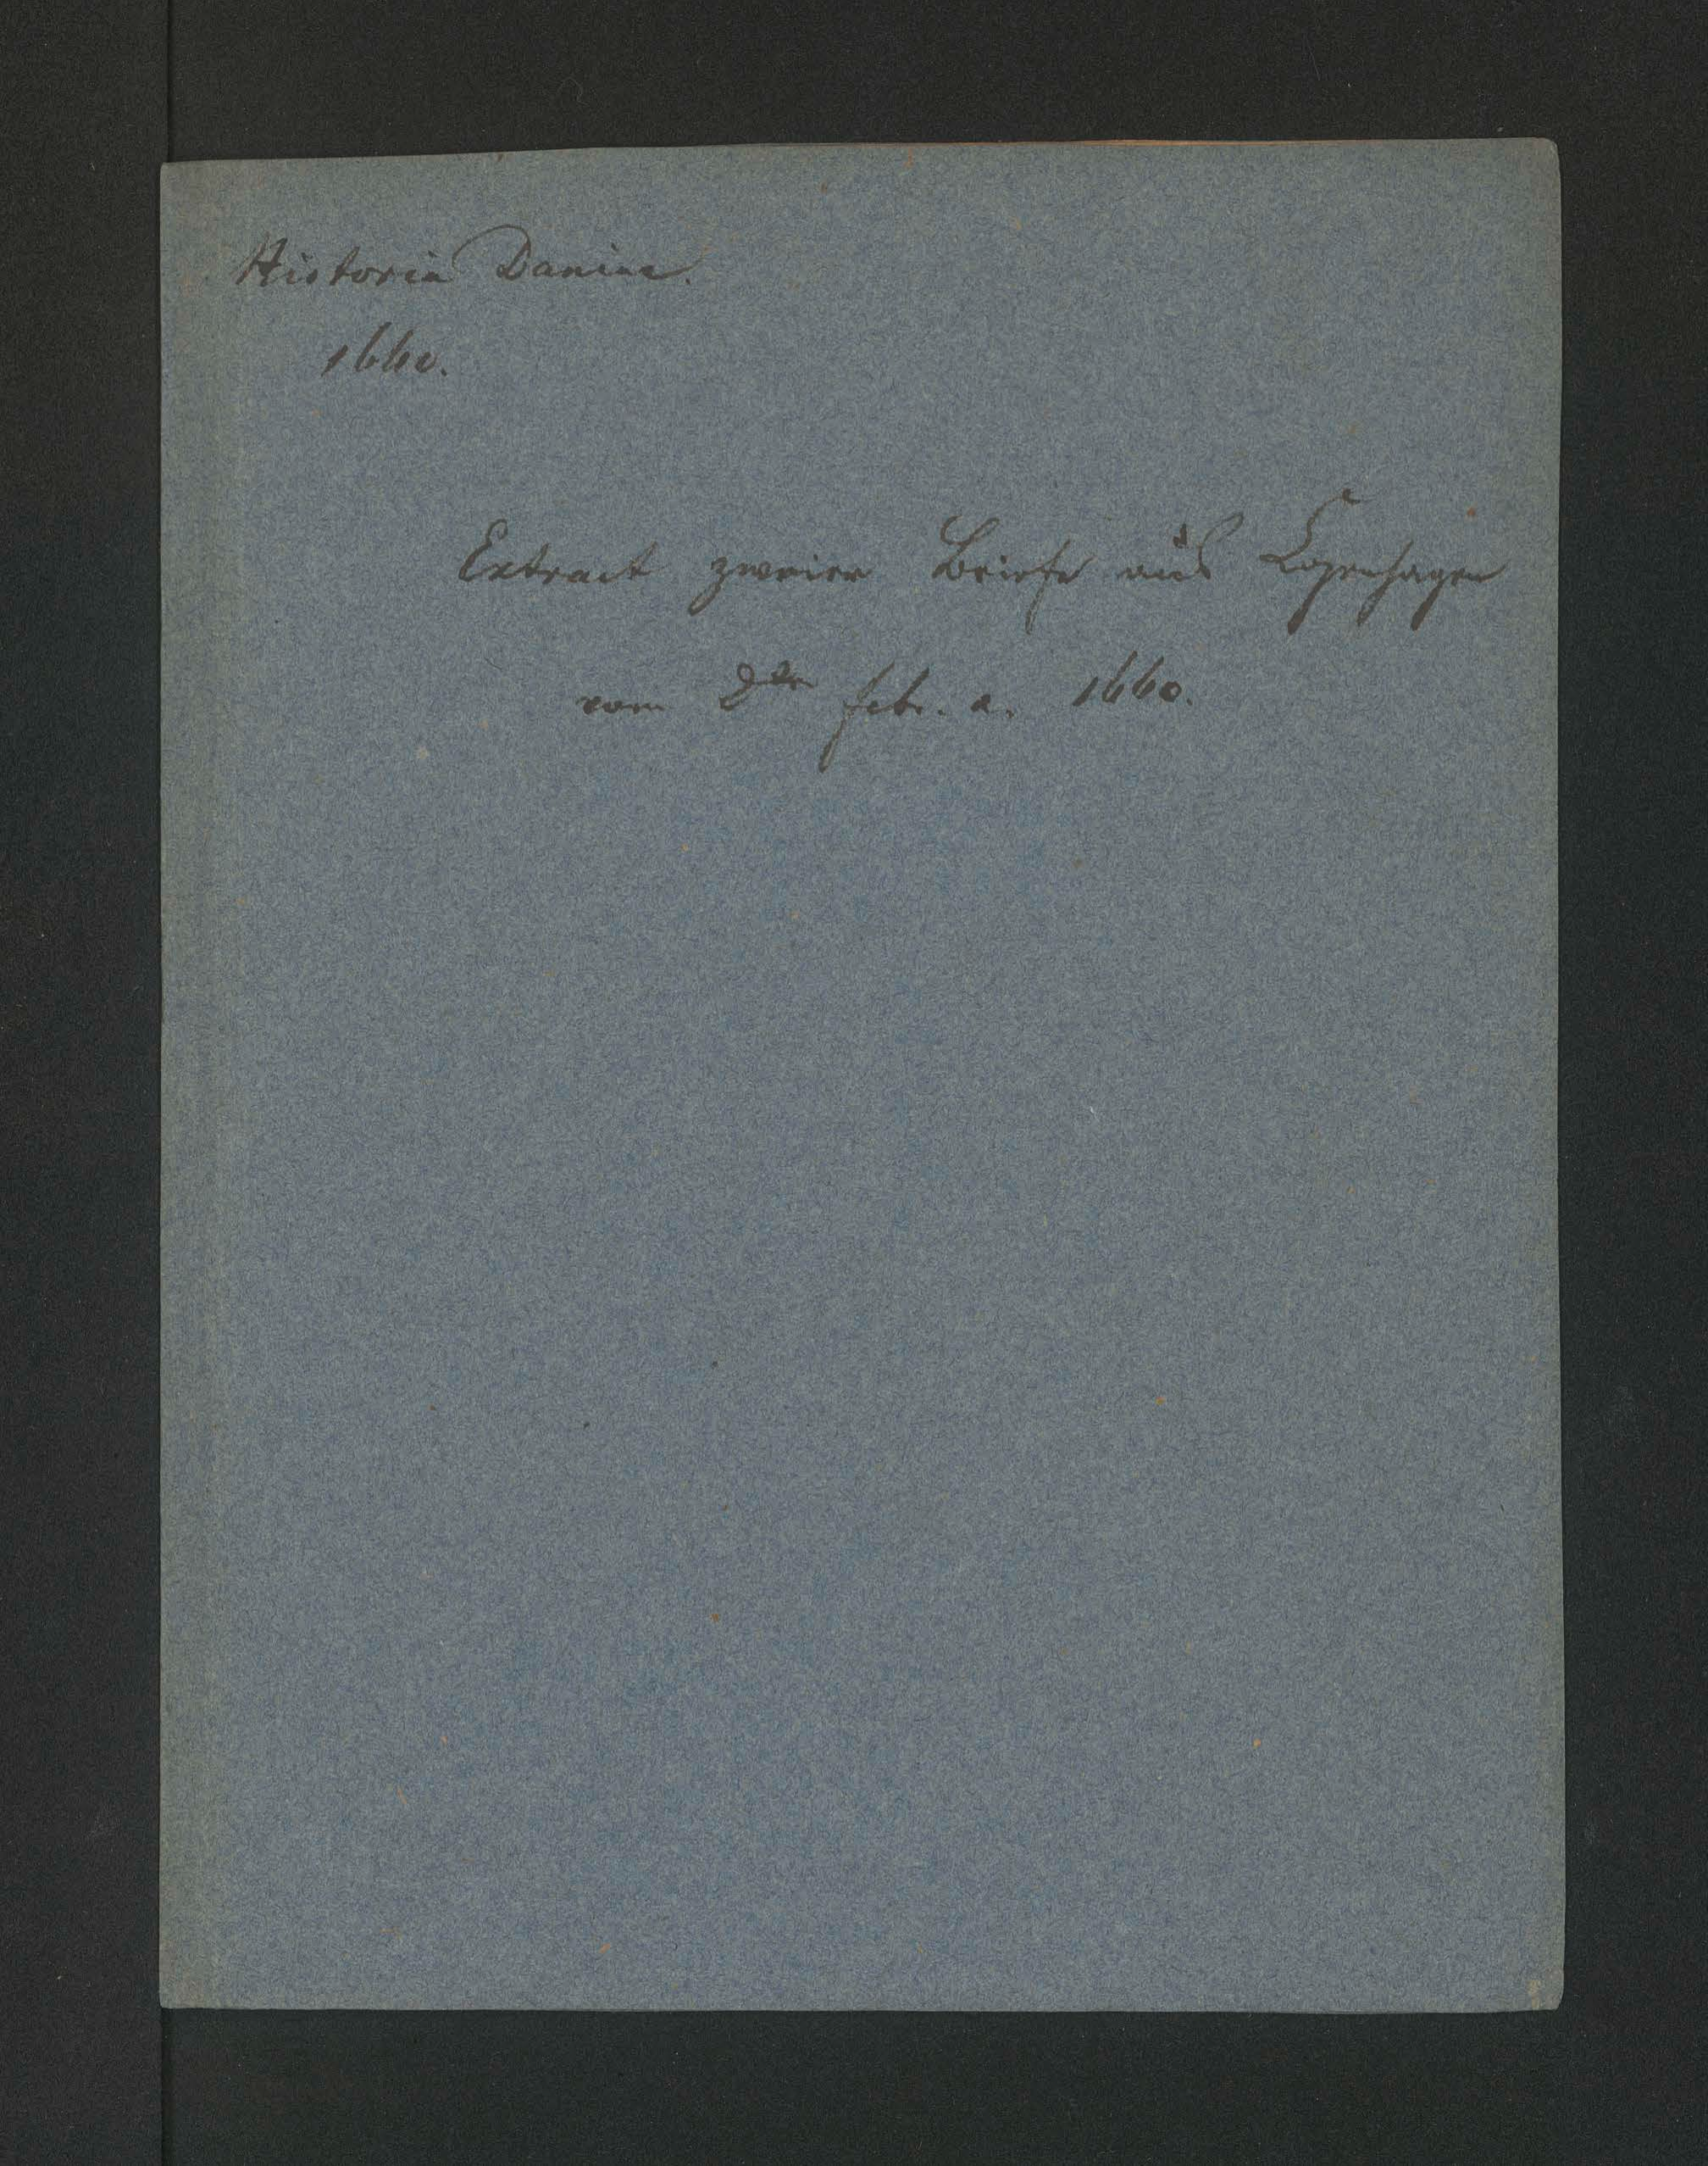 Historia Danica.
1660.
Extract zweier Briefe aus Copenhagen
vom 2ten Febr. a. 1660.